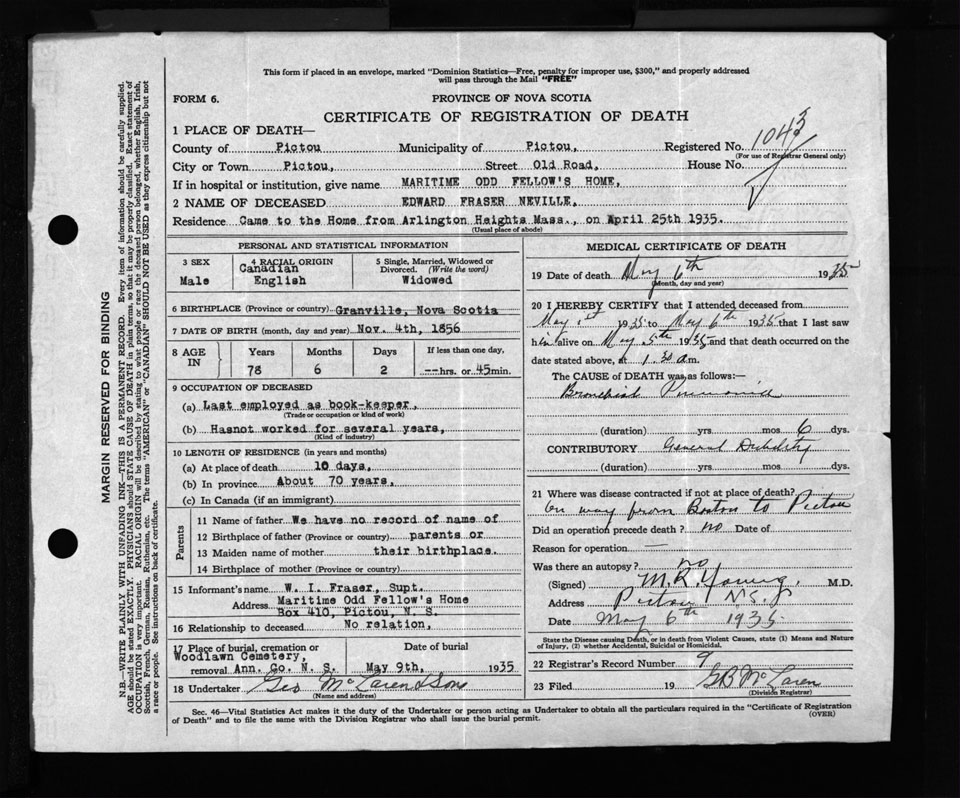 This form if placed in an envelope, marked "Dominion Statistics—Free, penalty for improper use, $300," and properly addressed
will pass through the Mail "FREE"
FORM 6.
PROVINCE OF NOVA SCOTIA
CERTIFICATE OF REGISTRATION OF DEATH
1 PLACE OF DEATH—
County of Pictou Municipality of Pictou, Registered No. 1043
(For use of Registrar General only)
City or Town Pictou, Street Old Road, House No.
If in hospital or institution, give name MARITIME ODD FELLOW'S HOME,
2 NAME OF DECEASED EDWARD FRASER NEVILLE,
Residence Came to the Home from Arlington Heights Mass., on April 25th 1935.
(Usual place of abode)
PERSONAL AND STATISTICAL INFORMATION
3 SEX
Male
4 RACIAL ORIGIN
Canadian
English
5 Single, Married, Widowed or
Divorced. (Write the word)
Widowed
6 BIRTHPLACE (Province or country) Granville, Nova Scotia
7 DATE OF BIRTH (month, day and year) Nov. 4th, 1856
8 AGE IN
Years Months Days If less than one day,
78 6 2 --hrs. or 45min.
9 OCCUPATION OF DECEASED
(a) Last employed as book-keeper,
(Trade or occupation or kind of work)
(b) Hasnot worked for several years,
(Kind of industry)
10 LENGTH OF RESIDENCE (in years and months)
(a) At place of death 10 days,
(b) In province About 70 years,
(c) In Canada (if an immigrant)
Parents
11 Name of father We have no record of name of
12 Birthplace of father (Province or country) parents or
13 Maiden name of mother their birthplace.
14 Birthplace of mother (Province or country)
15 Informant's name W. I. Fraser, Supt.
Address Maritime Odd Fellow's Home
Box 410, Pictou, N. S.
16 Relationship to deceased No relation,
17 Place of burial, cremation or Date of burial
Woodlawn Cemetery,
removal Ann. Co. N. S. May 9th, 1935
18 Undertaker Geo McLaren & Sons
(Name and address)
MEDICAL CERTIFICATE OF DEATH
19 Date of death May 6th 1935
(Month, day and year)
20 I HEREBY CERTIFY that I attended deceased from
May 1st 1935 to May 6th 1935 that I last saw
him alive on May 5th 1935 and that death occurred on the
date stated above, at 1.30 a.m.
The CAUSE of DEATH was as follows:—
Bronchial Pneumonia
(duration) yrs. mos. 6 dys.
CONTRIBUTORY General Debility
(duration) yrs. mos. dys.
21 Where was disease contracted if not at place of death?
On way from Boston to Pictou
Did an operation precede death? no Date of
Reason for operation —
Was there an autopsy? no
(Signed) M. R. Young, M.D.
Address Pictou N.S.
Date May 6th 1935
State the Disease causing Death, or in death from Violent Causes, state (1) Means and Nature
of Injury, (2) whether Accidental, Suicidal or Homicidal.
22 Registrar's Record Number 9
23 Filed 19 GB McLaren
(Division Registrar)
Sec. 46—Vital Statistics Act makes it the duty of the Undertaker or person acting as Undertaker to obtain all the particulars required in the "Certificate of Registration
of Death" and to file the same with the Division Registrar who shall issue the burial permit.
(OVER)
MARGIN RESERVED FOR BINDING
N.B.—WRITE PLAINLY WITH UNFADING INK—THIS IS A PERMANENT RECORD. Every item of information should be carefully supplied.
AGE should be stated EXACTLY. PHYSICIANS should STATE CAUSE OF DEATH in plain terms, so that it may be properly classified. Exact statement of
OCCUPATION is very important. RACIAL ORIGIN will be described by stating to what people or race the deceased person belonged, whether English, Irish,
Scottish, French, German, Russian, Ruthenian, etc. The terms "AMERICAN" or "CANADIAN" SHOULD NOT BE USED as they express citizenship but not
a race or people. See instructions on back of certificate.